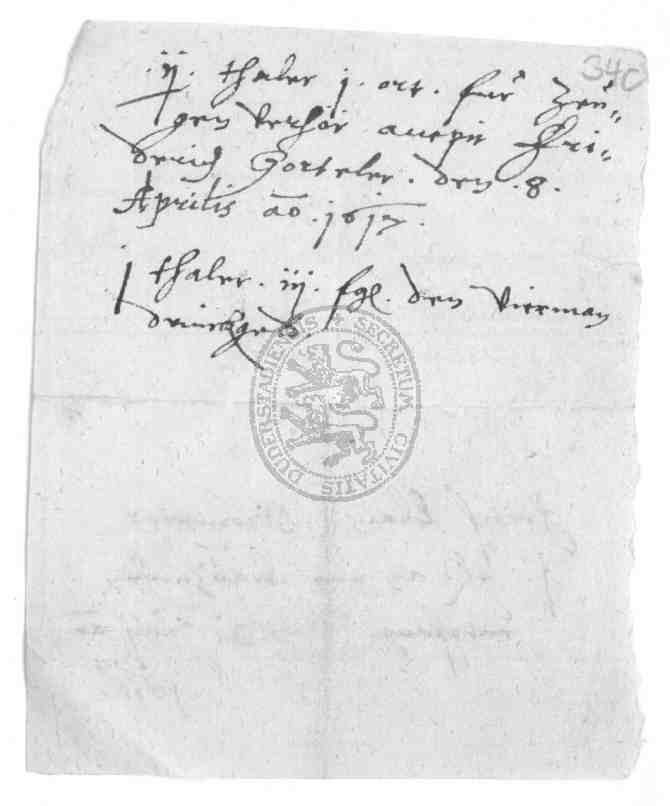 340
ij. thaler j. ort. fur Zeu=
gen verhör accepit Fri=
derich Gorteler. den .8.
Aprilis ao. 1617.
j thaler. iij. fgl. den Vierman
drinckgeld.
SECRETUM CIVITATIS DUDERSTADIENSIS